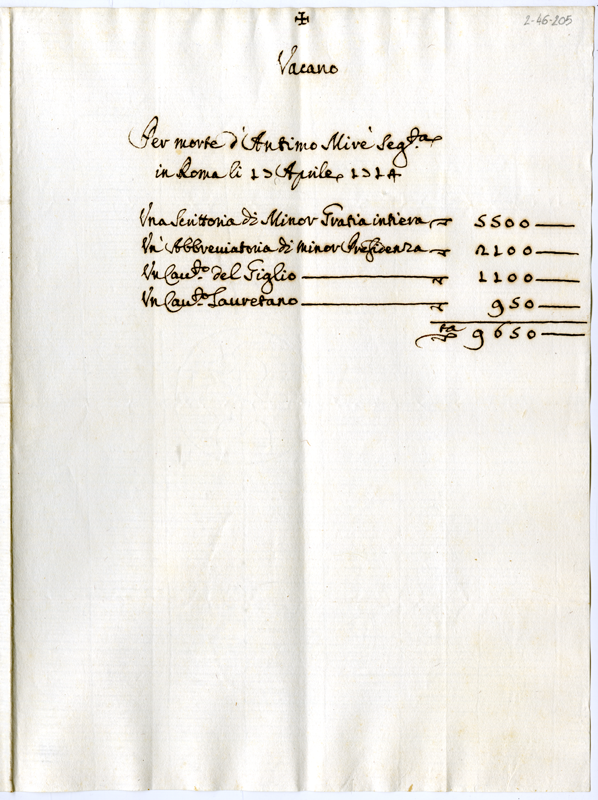 2-46-205
✠
Vacano
Per morte d'Antimo Mirè Seg.ta
in Roma li 17 Aprile 1714
Una Scrittoria di Minor Gratia intiera 5500
Un' Abbreviatoria di minor Presidenza 2100
Un Cau.to del Giglio 1100
Un Cau.to Lauretano 950
9650